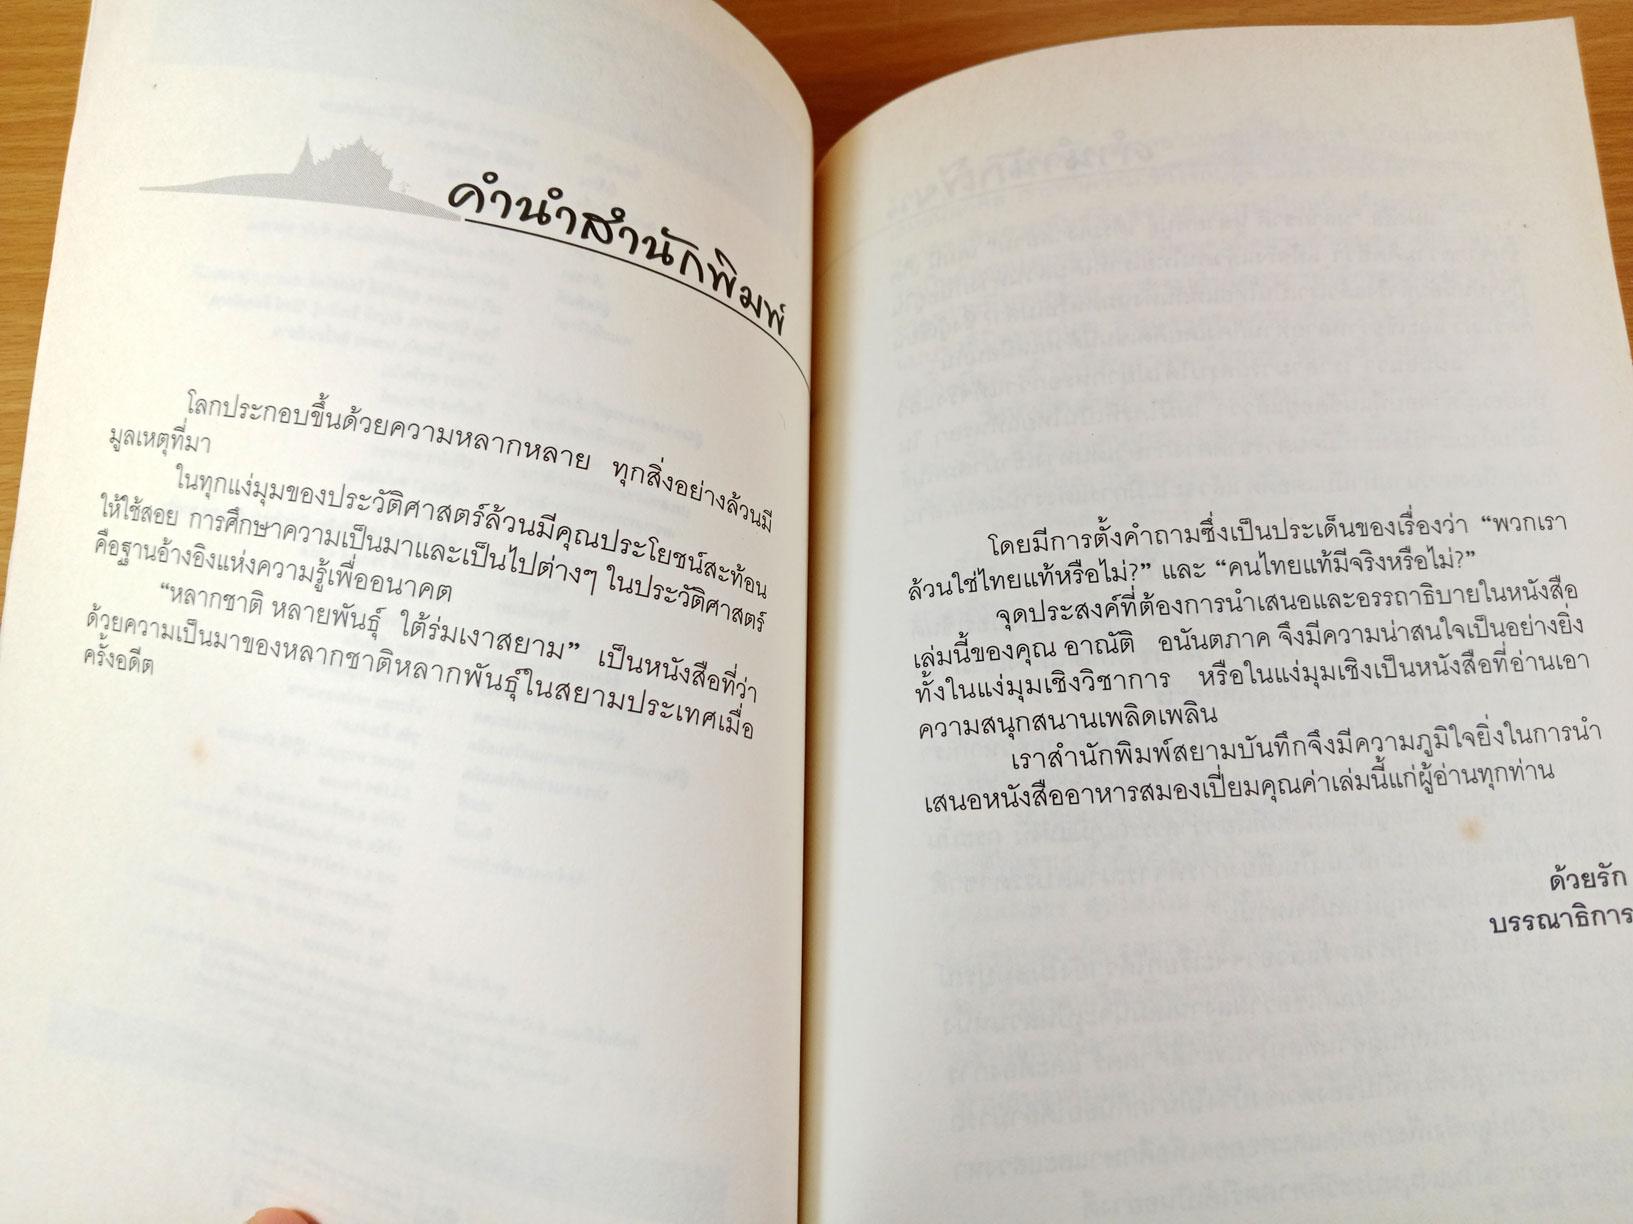 คำนำสำนักพิมพ์
โลกประกอบขึ้นด้วยความหลากหลาย ทุกสิ่งอย่างล้วนมี
มูลเหตุที่มา
ในทุกแง่มุมของประวัติศาสตร์ล้วนมีคุณประโยชน์สะท้อน
ให้ใช้สอย การศึกษาความเป็นมาและเป็นไปต่างๆ ในประวัติศาสตร์
คือฐานอ้างอิงแห่งความรู้เพื่ออนาคต
“หลากชาติ หลายพันธุ์ ใต้ร่มเงาสยาม” เป็นหนังสือที่ว่า
ด้วยความเป็นมาของหลากชาติหลากพันธุ์ในสยามประเทศเมื่อ
ครั้งอดีต
โดยมีการตั้งคำถามซึ่งเป็นประเด็นของเรื่องว่า “พวกเรา
ล้วนใช่ไทยแท้หรือไม่?” และ “คนไทยแท้มีจริงหรือไม่?”
จุดประสงค์ที่ต้องการนำเสนอและอรรถาธิบายในหนังสือ
เล่มนี้ของคุณ อาณัติ อนันตภาค จึงมีความน่าสนใจเป็นอย่างยิ่ง
ทั้งในแง่มุมเชิงวิชาการ หรือในแง่มุมเชิงเป็นหนังสือที่อ่านเอา
ความสนุกสนานเพลิดเพลิน
เราสำนักพิมพ์สยามบันทึกจึงมีความภูมิใจยิ่งในการนำ
เสนอหนังสืออาหารสมองเปี่ยมคุณค่าเล่มนี้แก่ผู้อ่านทุกท่าน
ด้วยรัก
บรรณาธิการ